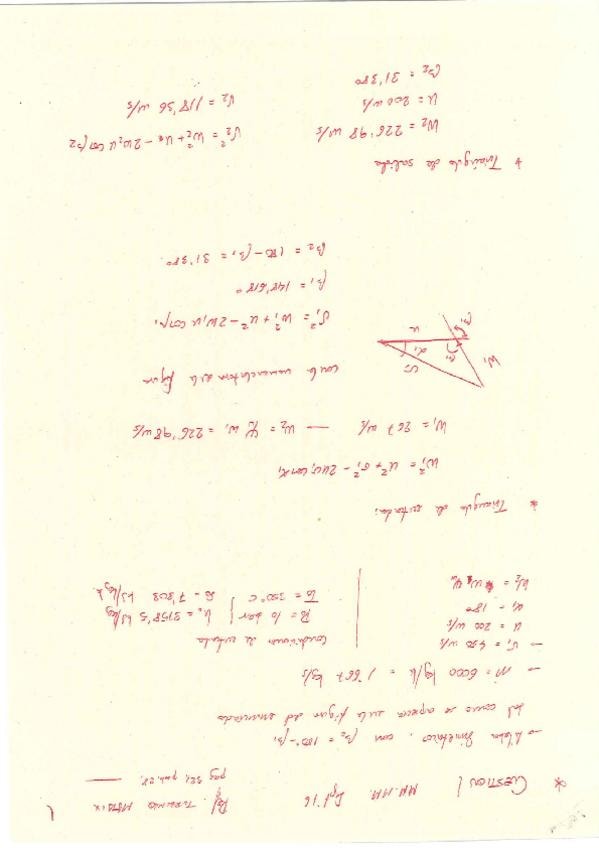 * CUESTION 1 MM.HH Sept '16 Ref. TURBINAS
pag 321, prob. 28.
→ Álabe simétrico, con β2 = 180°-β1
tal como se aparece en la figura del enunciado
→ ṁ = 6000 kg/h = 1'667 kg/s
→ V1 = 450 m/s
u = 200 m/s
α1 = 18°
W2 = W1 ψ
Condiciones de entrada
P0 = 10 bar } h0 =
T0 = 350°C } kJ/kg K
* Triangulo de entrada:
W1² = u² + v1² - 2uv1 cos α1
W1 = 267 m/s — W2 = ψ W1 = 226'98 m/s
con la nomenclatura de la figura
V1² = W1² + u² - 2W1 u cos β1
β1 = 148'618°
β2 = 180 - β1 = 31'38°
W1
V1
α1
u
* Triángulo de salida
W2 = 226'98 m/s
u = 200 m/s
β2 = 31'38°
V2² = W2² + u² - 2W2 u cos β2
V2 = 118'36 m/s